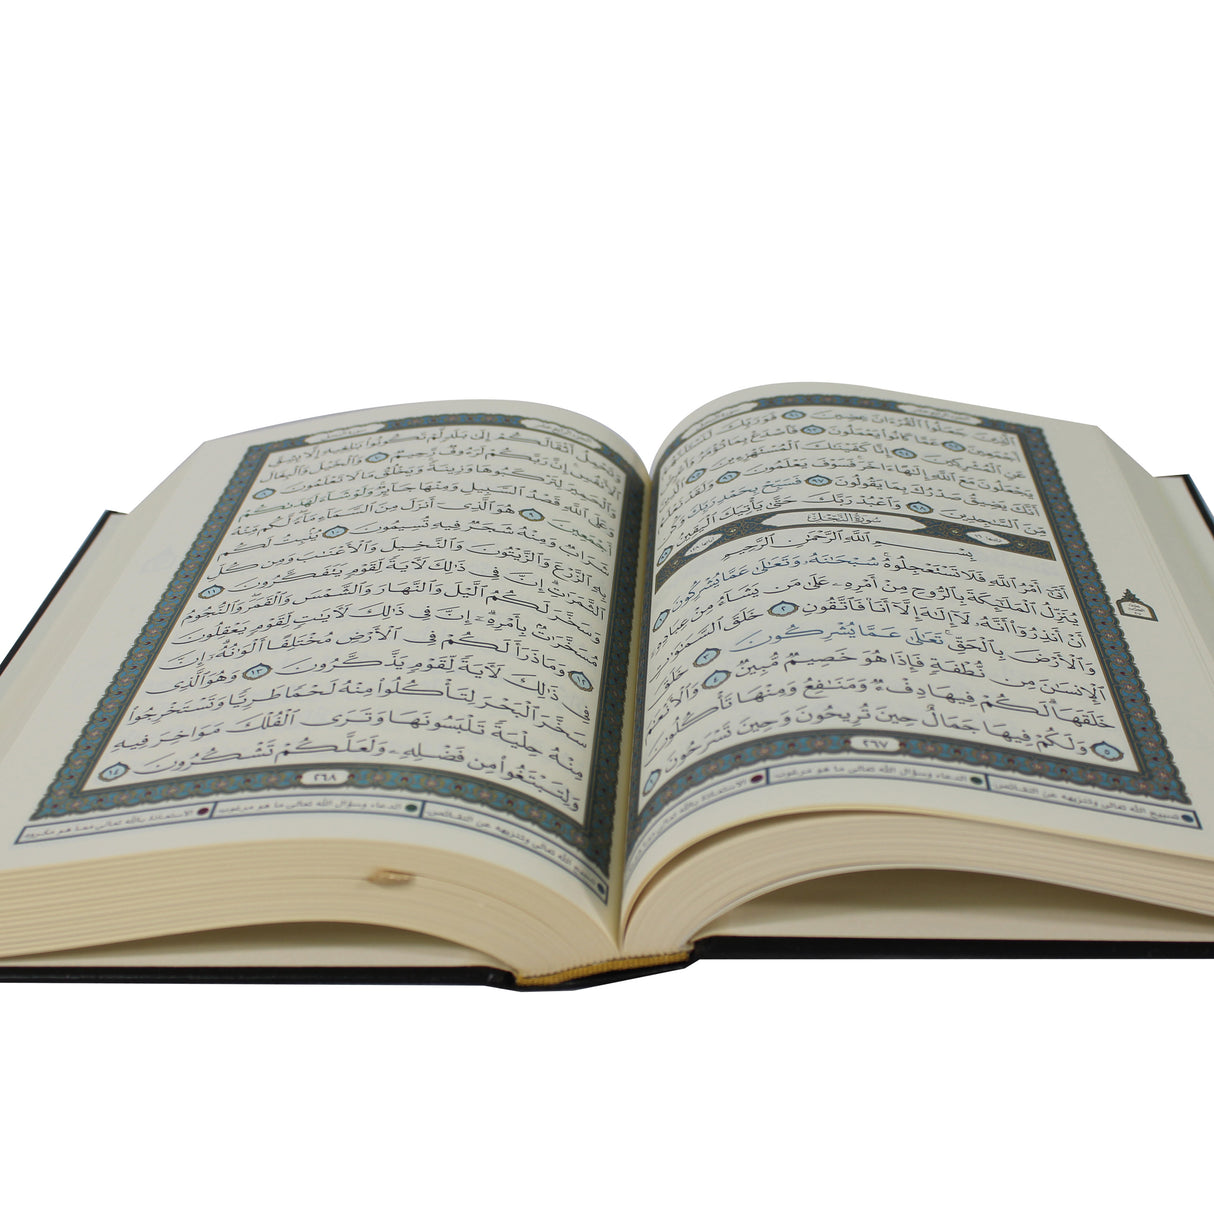 ٱلَّذِينَ جَعَلُوا۟ ٱلْقُرْءَانَ عِضِينَ ٩١ فَوَرَبِّكَ لَنَسْـَٔلَنَّهُمْ
أَجْمَعِينَ ٩٢ عَمَّا كَانُوا۟ يَعْمَلُونَ ٩٣ فَٱصْدَعْ بِمَا تُؤْمَرُ وَأَعْرِضْ
عَنِ ٱلْمُشْرِكِينَ ٩٤ إِنَّا كَفَيْنَٰكَ ٱلْمُسْتَهْزِءِينَ ٩٥ ٱلَّذِينَ
يَجْعَلُونَ مَعَ ٱللَّهِ إِلَٰهًا ءَاخَرَ فَسَوْفَ يَعْلَمُونَ ٩٦ وَلَقَدْ نَعْلَمُ
أَنَّكَ يَضِيقُ صَدْرُكَ بِمَا يَقُولُونَ ٩٧ فَسَبِّحْ بِحَمْدِ رَبِّكَ وَكُن
مِّنَ ٱلسَّٰجِدِينَ ٩٨ وَٱعْبُدْ رَبَّكَ حَتَّىٰ يَأْتِيَكَ ٱلْيَقِينُ ٩٩
سُورَةُ النَّحْلِ
بِسْمِ ٱللَّهِ ٱلرَّحْمَٰنِ ٱلرَّحِيمِ
أَتَىٰٓ أَمْرُ ٱللَّهِ فَلَا تَسْتَعْجِلُوهُ سُبْحَٰنَهُۥ وَتَعَٰلَىٰ عَمَّا يُشْرِكُونَ ١
يُنَزِّلُ ٱلْمَلَٰٓئِكَةَ بِٱلرُّوحِ مِنْ أَمْرِهِۦ عَلَىٰ مَن يَشَآءُ مِنْ عِبَادِهِۦٓ
أَنْ أَنذِرُوٓا۟ أَنَّهُۥ لَآ إِلَٰهَ إِلَّآ أَنَا۠ فَٱتَّقُونِ ٢ خَلَقَ ٱلسَّمَٰوَٰتِ
وَٱلْأَرْضَ بِٱلْحَقِّ تَعَٰلَىٰ عَمَّا يُشْرِكُونَ ٣ خَلَقَ
ٱلْإِنسَٰنَ مِن نُّطْفَةٍ فَإِذَا هُوَ خَصِيمٌ مُّبِينٌ ٤ وَٱلْأَنْعَٰمَ
خَلَقَهَا لَكُمْ فِيهَا دِفْءٌ وَمَنَٰفِعُ وَمِنْهَا تَأْكُلُونَ
٥ وَلَكُمْ فِيهَا جَمَالٌ حِينَ تُرِيحُونَ وَحِينَ تَسْرَحُونَ ٦
٢٦٧
تسبيح الله تعالى وتنزيهه عن النقائص ● الدعاء وسؤال الله تعالى ما هو مرغوب ● الاستعاذة بالله تعالى مما هو
وَتَحْمِلُ أَثْقَالَكُمْ إِلَىٰ بَلَدٍ لَّمْ تَكُونُوا۟ بَٰلِغِيهِ إِلَّا بِشِقِّ
ٱلْأَنفُسِ إِنَّ رَبَّكُمْ لَرَءُوفٌ رَّحِيمٌ ٧ وَٱلْخَيْلَ وَٱلْبِغَالَ
وَٱلْحَمِيرَ لِتَرْكَبُوهَا وَزِينَةً وَيَخْلُقُ مَا لَا تَعْلَمُونَ ٨
وَعَلَى ٱللَّهِ قَصْدُ ٱلسَّبِيلِ وَمِنْهَا جَآئِرٌ وَلَوْ شَآءَ لَهَدَىٰكُمْ
أَجْمَعِينَ ٩ هُوَ ٱلَّذِىٓ أَنزَلَ مِنَ ٱلسَّمَآءِ مَآءً لَّكُم مِّنْهُ
شَرَابٌ وَمِنْهُ شَجَرٌ فِيهِ تُسِيمُونَ ١٠ يُنۢبِتُ لَكُم
بِهِ ٱلزَّرْعَ وَٱلزَّيْتُونَ وَٱلنَّخِيلَ وَٱلْأَعْنَٰبَ وَمِن كُلِّ
ٱلثَّمَرَٰتِ إِنَّ فِى ذَٰلِكَ لَءَايَةً لِّقَوْمٍ يَتَفَكَّرُونَ ١١
وَسَخَّرَ لَكُمُ ٱلَّيْلَ وَٱلنَّهَارَ وَٱلشَّمْسَ وَٱلْقَمَرَ وَٱلنُّجُومُ
مُسَخَّرَٰتٌۢ بِأَمْرِهِۦٓ إِنَّ فِى ذَٰلِكَ لَءَايَٰتٍ لِّقَوْمٍ يَعْقِلُونَ
١٢ وَمَا ذَرَأَ لَكُمْ فِى ٱلْأَرْضِ مُخْتَلِفًا أَلْوَٰنُهُۥٓ إِنَّ
فِى ذَٰلِكَ لَءَايَةً لِّقَوْمٍ يَذَّكَّرُونَ ١٣ وَهُوَ ٱلَّذِى
سَخَّرَ ٱلْبَحْرَ لِتَأْكُلُوا۟ مِنْهُ لَحْمًا طَرِيًّا وَتَسْتَخْرِجُوا۟
مِنْهُ حِلْيَةً تَلْبَسُونَهَا وَتَرَى ٱلْفُلْكَ مَوَاخِرَ فِيهِ
وَلِتَبْتَغُوا۟ مِن فَضْلِهِۦ وَلَعَلَّكُمْ تَشْكُرُونَ ١٤
٢٦٨
تسبيح الله تعالى وتنزيهه عن النقائص ● الدعاء وسؤال الله تعالى ما هو مرغوب ● الاستعاذة بالله تعالى مما هو مكروه